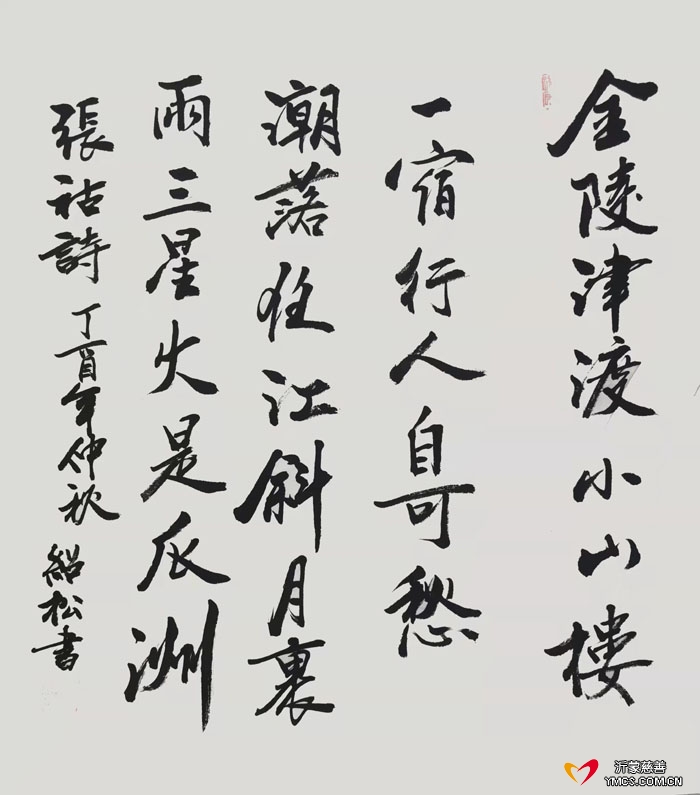 金陵津渡小山樓
一宿行人自可愁
潮落夜江斜月裏
兩三星火是瓜洲
張祜詩 丁酉年仲秋 紹松書
沂蒙慈善
YMCS.COM.CN